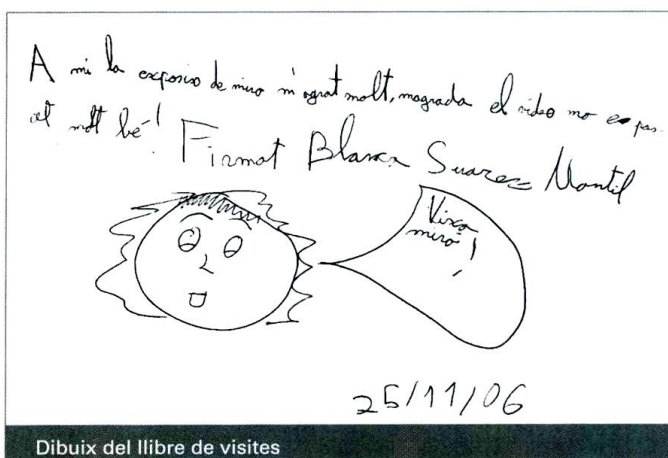 A mi la exposixo de miro m'agrat molt, magrada el video mo e pas.
at molt bé!
Firmat Blanca Suarez Montil
Vixca
miro!
25/11/06
Dibuix del llibre de visites